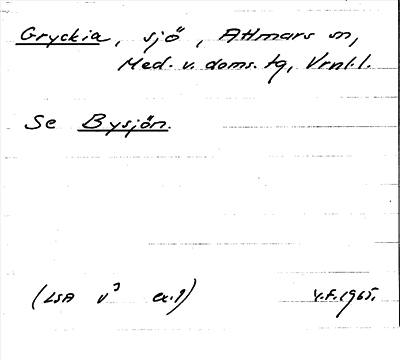 Gryckia, sjö, Attmars sn,
Med. v. doms. tg, Vrnl.l.
Se Bysjön.
(LSA V³ ex.1) V.F. 1965.